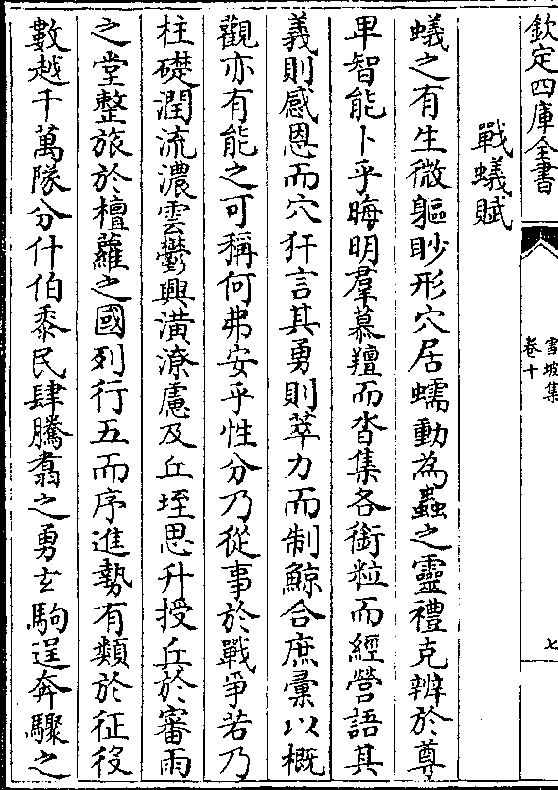 欽定四庫全書
雪坡集
卷十
七
戰蟻賦
蟻之有生微軀眇形穴居蠕動為蟲之靈禮克辨於尊
卑智能卜乎晦明羣慕羶而沓集各銜粒而經營語其
義則感恩而穴犴言其勇則萃力而制鯨合庶彙以概
觀亦有能之可稱何弗安乎性分乃從事於戰爭若乃
柱礎潤流濃雲鬱興潢潦慮及丘垤思升授丘於審雨
之堂整旅於檀蘿之國列行五而序進勢有類於征役
數越千萬隊分什伯黍民肆騰翥之勇玄駒逞奔驟之